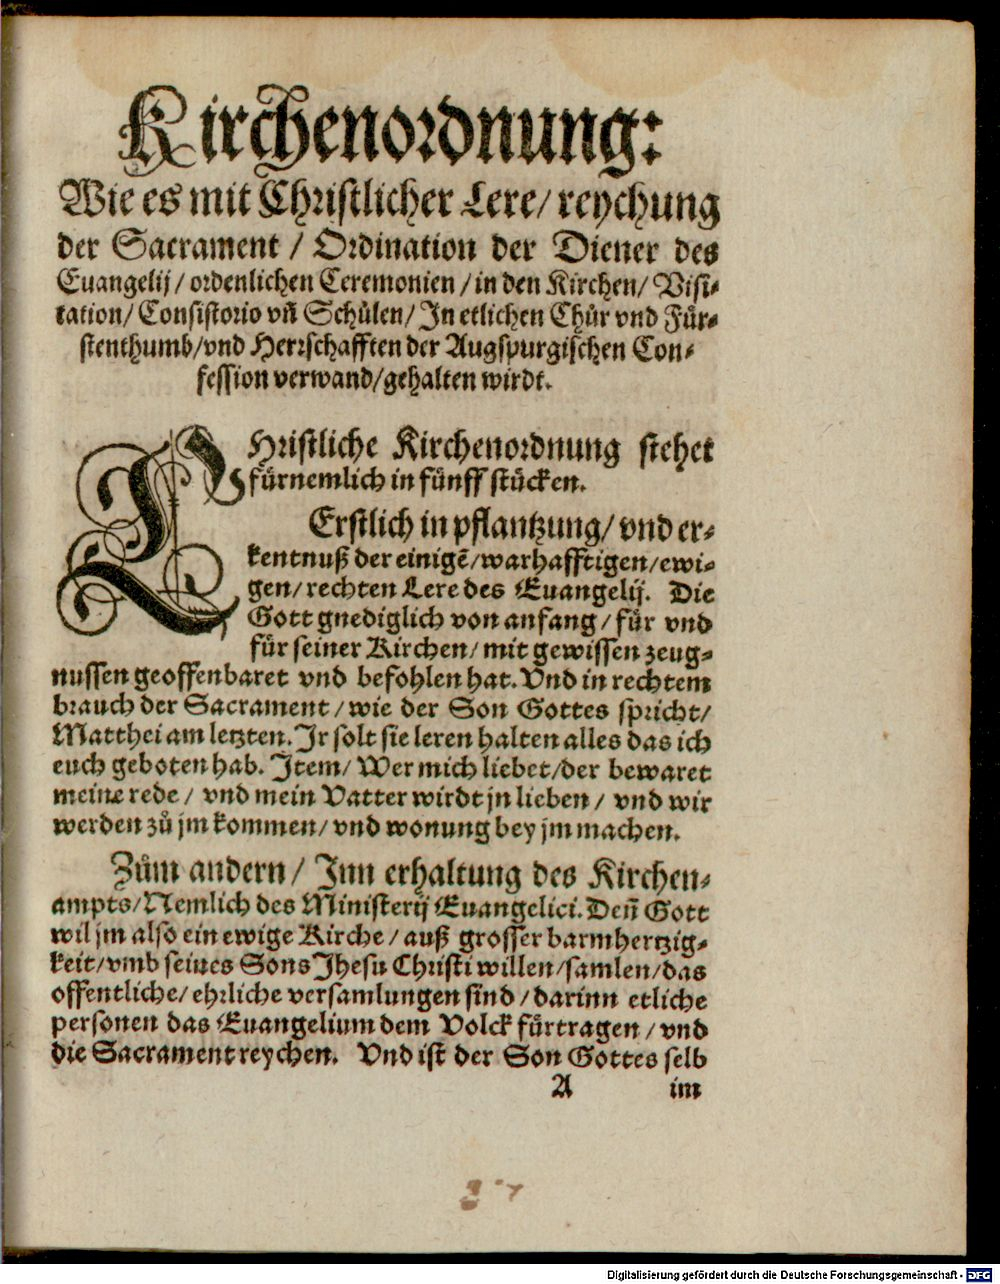 Kirchenordnung:
Wie es mit Christlicher Lere/ reychung
der Sacrament / Ordination der Diener des
Euangelij/ ordenlichen Ceremonien/ in den Kirchen/ Visi-
tation/ Consistorio vñ Schůlen/ In etlichen Chůr vnd Für-
stenthumb/vnd Herrschafften der Augspurgischen Con-
fession verwand/gehalten wirdt.
CHristliche Kirchenordnung stehet
fürnemlich in fünff stücken.
Erstlich in pflantzung/ vnd er-
kentnuß der einigẽ/warhafftigen/ewi-
gen/ rechten Lere des Euangelij. Die
Gott gnediglich von anfang/ für vnd
für seiner Kirchen/ mit gewissen zeug-
nussen geoffenbaret vnd befohlen hat. Vnd in rechtem
brauch der Sacrament/ wie der Son Gottes spricht/
Matthei am letzten. Ir solt sie leren halten alles das ich
euch geboten hab. Item/ Wer mich liebet/der bewaret
meine rede/ vnd mein Vatter wirdt jn lieben/ vnd wir
werden zů jm kommen/ vnd wonung bey jm machen.
Zům andern/ Inn erhaltung des Kirchen-
ampts/Nemlich des Ministerij Euangelici. Deñ Gott
wil jm also ein ewige Kirche/ auß grosser barmhertzig-
keit/vmb seines Sons Jhesu Christi willen/samlen/das
offentliche/ ehrliche versamlungen sind/darinn etliche
personen das Euangelium dem Volck fürtragen/vnd
die Sacrament reychen. Vnd ist der Son Gottes selb
A im
Digitalisierung gefördert durch die Deutsche Forschungsgemeinschaft - DFG